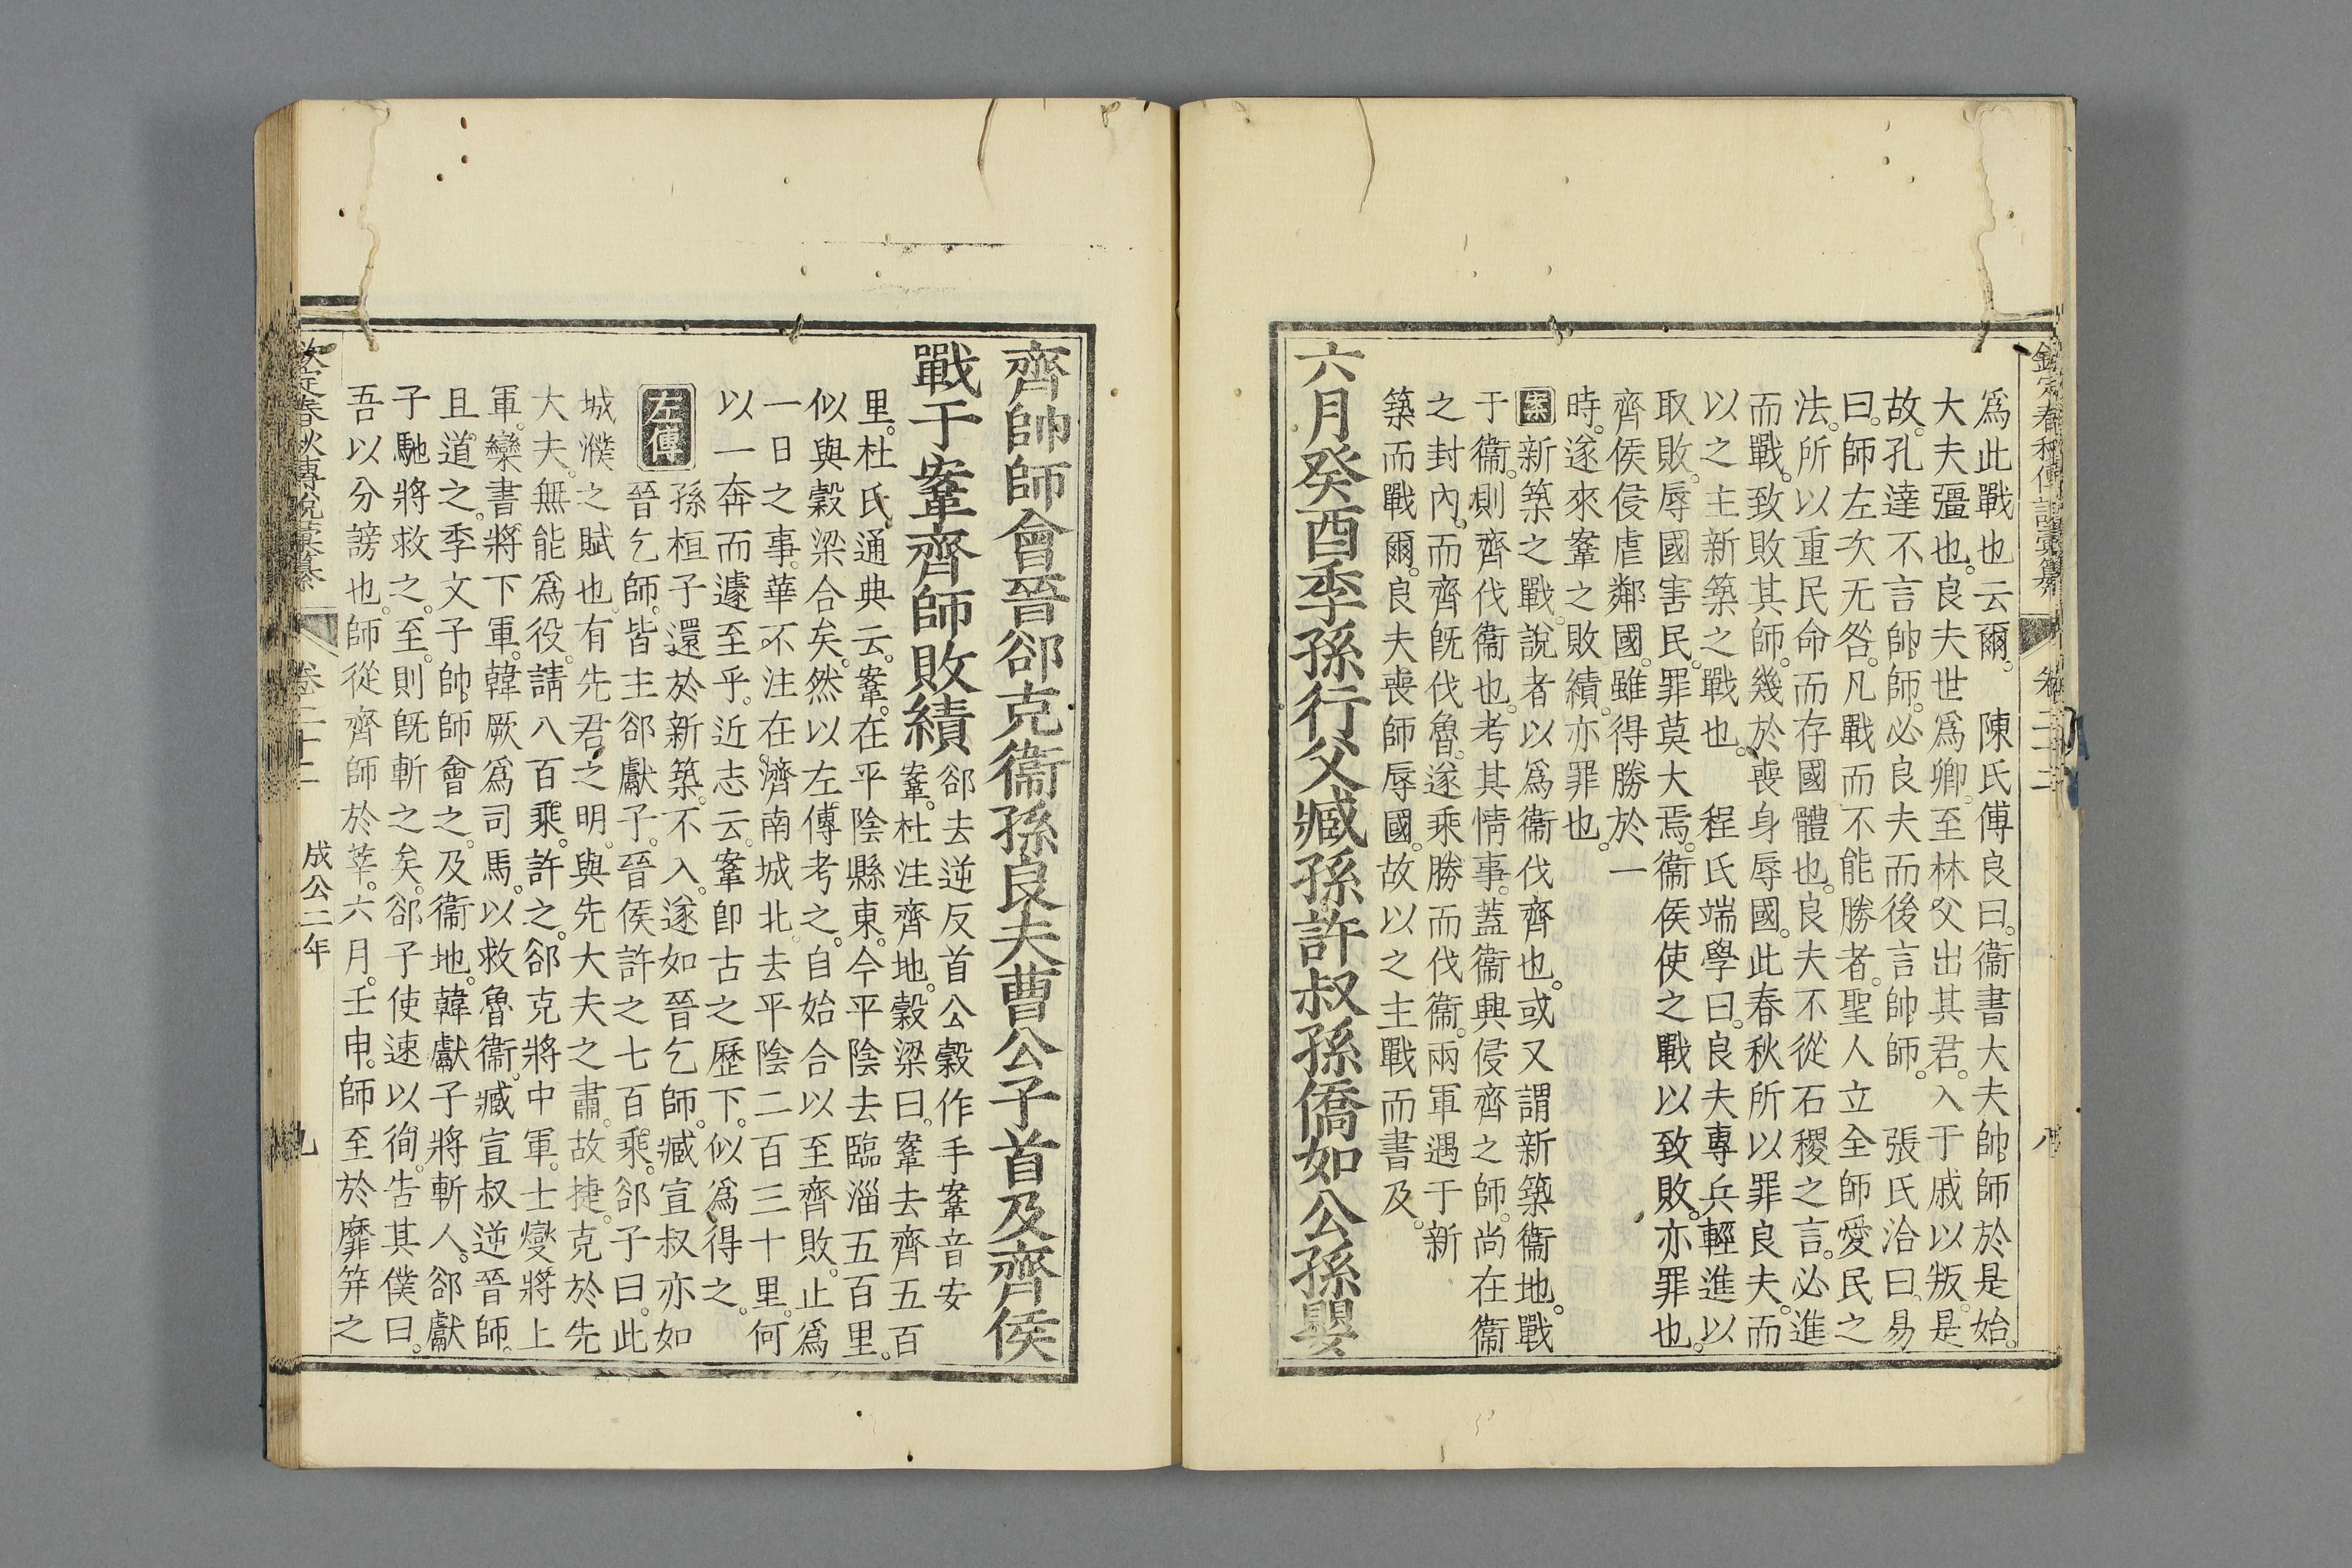 欽定春秋傳說彙纂 卷二十二 八
爲此戰也云爾。 陳氏傅良曰。衞書大夫帥師於是始。
大夫彊也。良夫世爲卿。至林父出其君。入于戚以叛。是
故。孔達不言帥師。必良夫而後言帥師。 張氏洽曰。易
曰。師左次无咎。凡戰而不能勝者。聖人立全師愛民之
法。所以重民命而存國體也。良夫不從石稷之言。必進
而戰。致敗其師。幾於喪身辱國。此春秋所以罪良夫。而
以之主新築之戰也。 程氏端學曰。良夫專兵輕進以
取敗。辱國害民。罪莫大焉。衞侯使之戰以致敗。亦罪也。
齊侯侵虐鄰國。雖得勝於一
時。遂來鞌之敗績。亦罪也。
案新築之戰。說者以爲衞伐齊也。或又謂新築衞地。戰
于衞。則齊伐衞也。考其情事。蓋衞興侵齊之師。尚在衞
之封內。而齊旣伐魯。遂乘勝而伐衞。兩軍遇于新
築而戰爾。良夫喪師辱國。故以之主戰而書及。
六月癸酉季孫行父臧孫許叔孫僑如公孫嬰
齊帥師會晉郤克衞孫良夫曹公子首及齊侯
戰于鞌齊師敗績 郤去逆反首公穀作手鞌音安
鞌。杜注齊地。穀梁曰。鞌去齊五百
里。杜氏通典云。鞌。在平陰縣東。今平陰去臨淄五百里。
似與穀梁合矣。然以左傳考之。自始合以至齊敗。止爲
一日之事。華不注在濟南城北。去平陰二百三十里。何
以一奔而遽至乎。近志云。鞌卽古之歷下。似爲得之。
左傳 孫桓子還於新築。不入。遂如晉乞師。臧宣叔亦如
晉乞師。皆主郤獻子。晉侯許之七百乘。郤子曰。此
城濮之賦也。有先君之明。與先大夫之肅。故捷。克於先
大夫。無能爲役。請八百乘。許之。郤克將中軍。士燮將上
軍。欒書將下軍。韓厥爲司馬。以救魯衞。臧宣叔逆晉師。
且道之。季文子帥師會之。及衞地。韓獻子將斬人。郤獻
子馳將救之。至。則旣斬之矣。郤子使速以徇。告其僕曰。
吾以分謗也。師從齊師於莘。六月。壬申。師至於靡笄之
欽定春秋傳說彙纂 卷二十二 成公二年 九